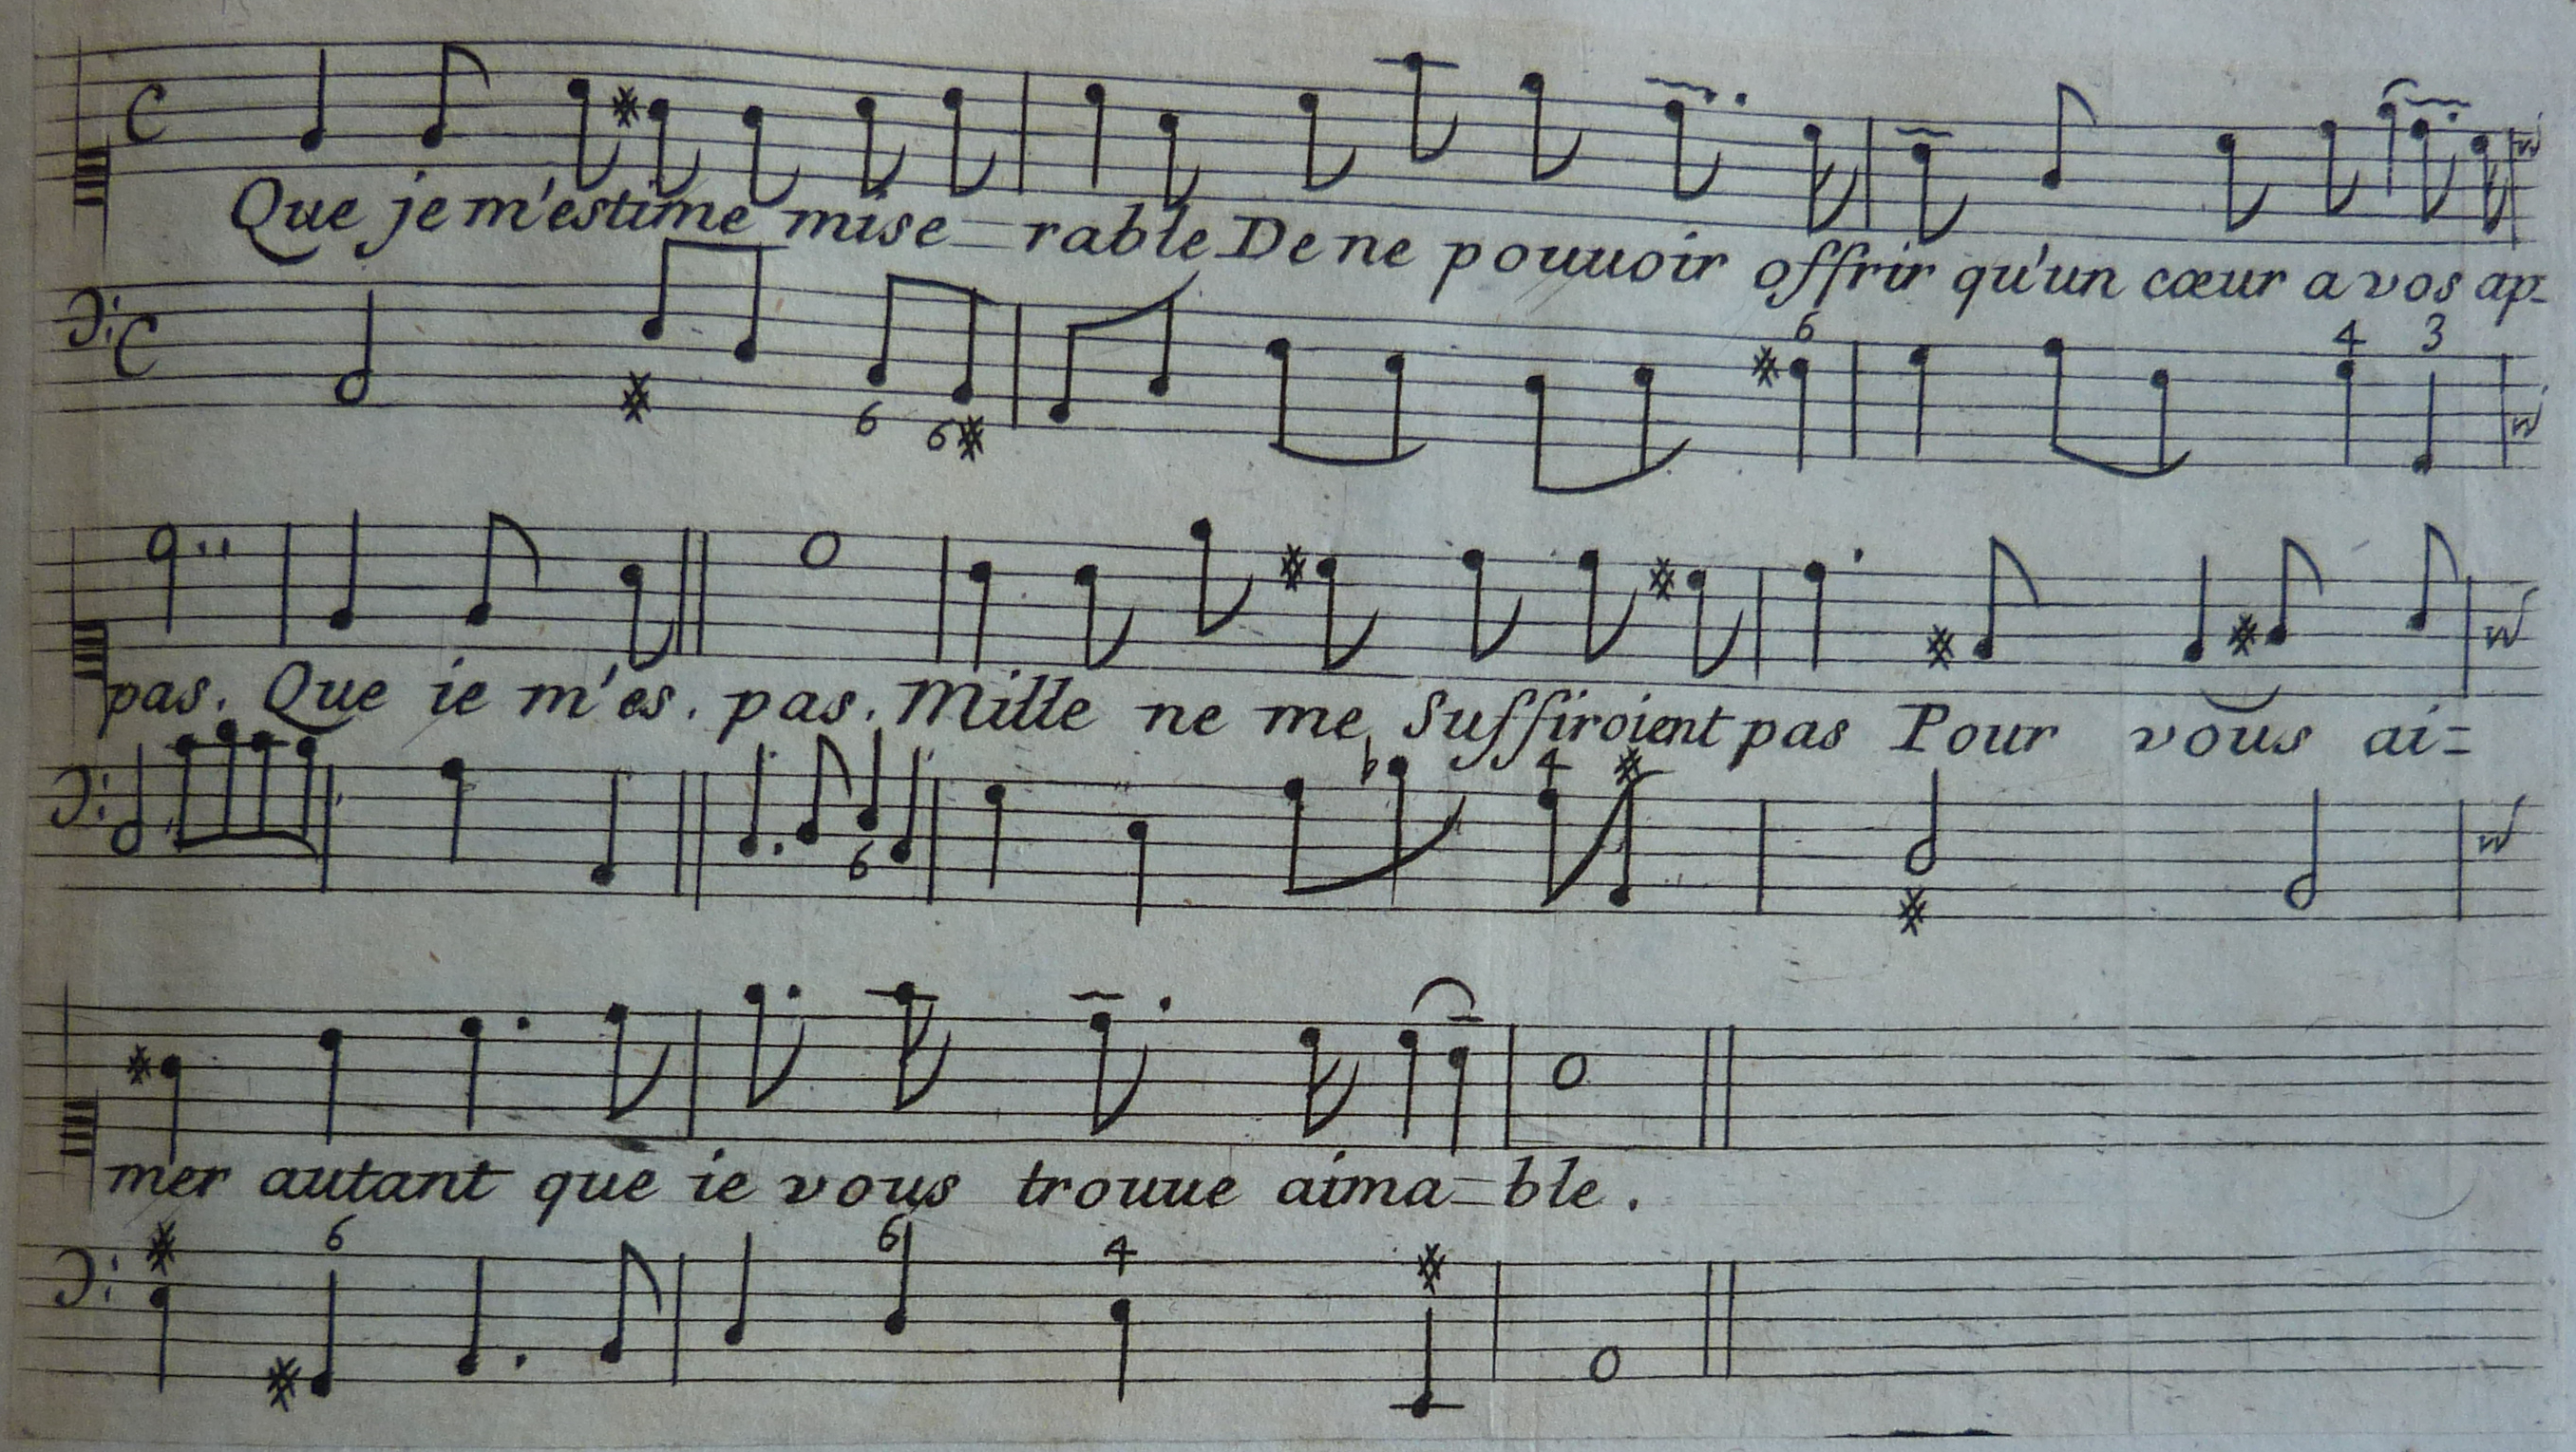 Que je m'estime mise=rable De ne pouuoir offrir qu'un cœur a vos ap=
6 4 3
6 6
pas. Que ie m'es. pas. Mille ne me suffiroient pas Pour vous ai=
4
6
mer autant que ie vous trouue aima=ble.
6 6 4